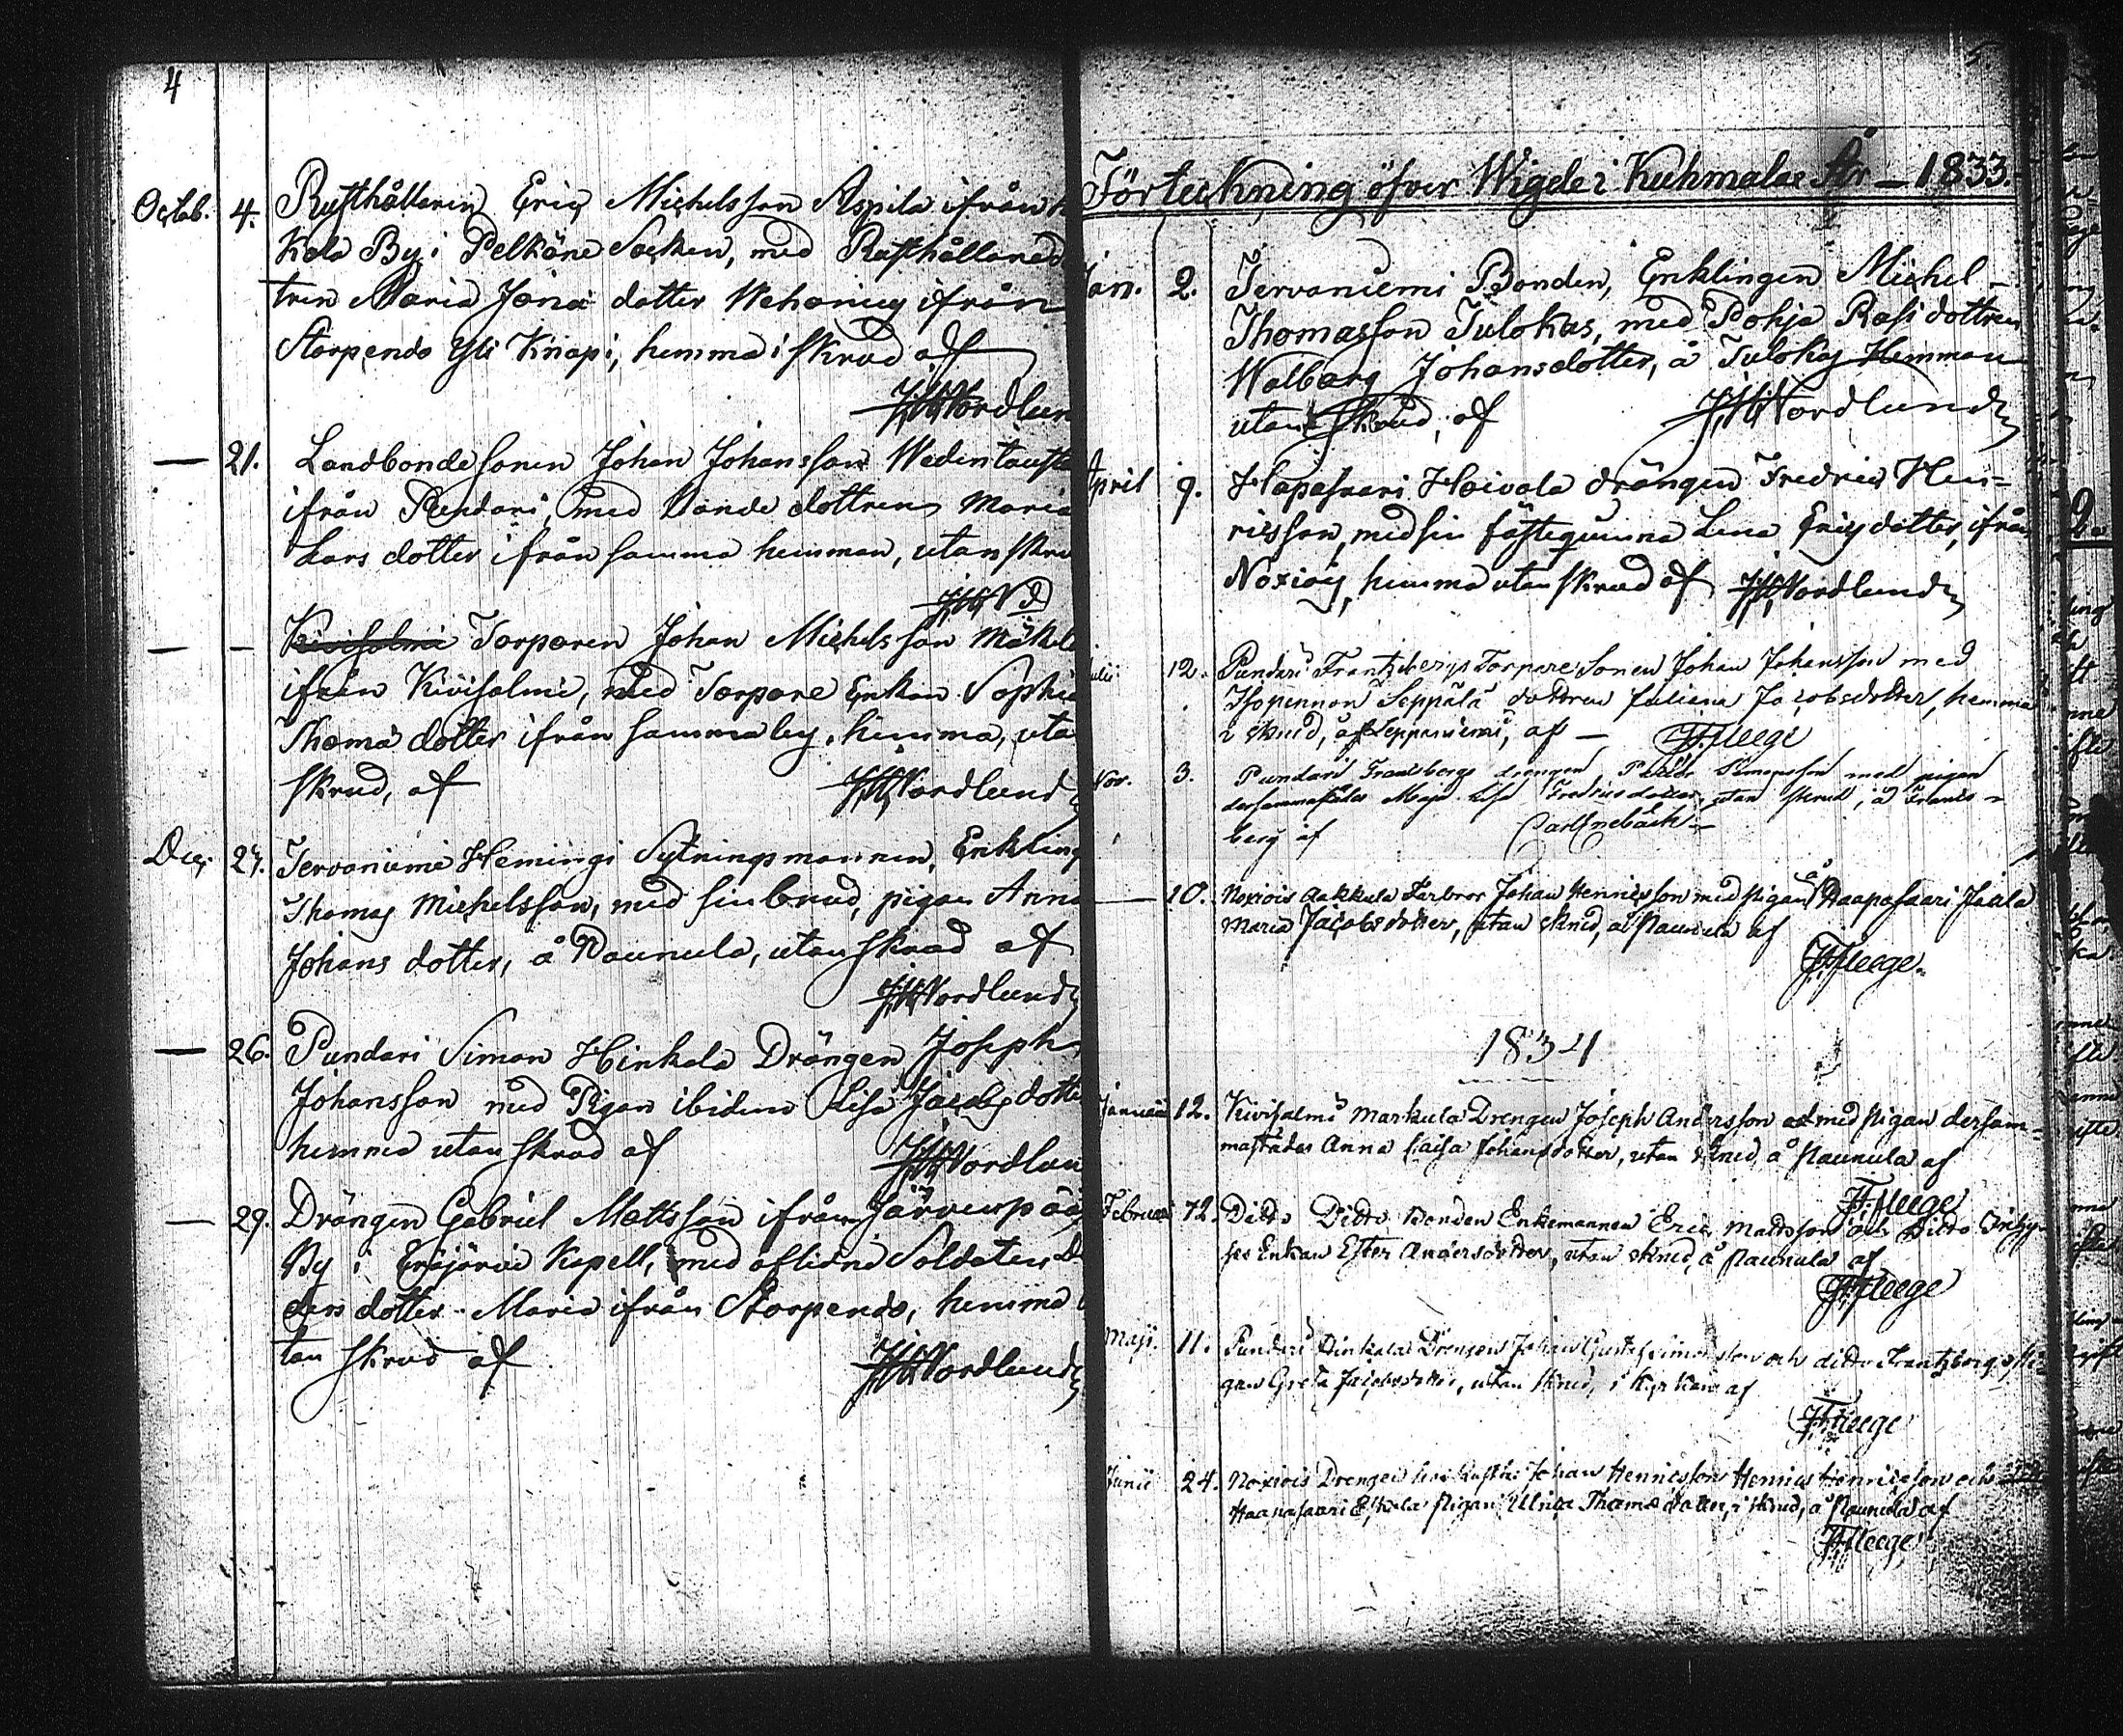 4
Octob. 4. Rusthållaren Eric Michelsson Aspila ifrån
kola By i Pelkäne Socken, med Rusthållared
tren Maria Jona dotter Wehoniey ifrån
Storpendo Yli Knapi, hemma i skrud af
JHNordlun
— 21. Landbonde sonen Johan Johansson Wedentausta
ifrån Pundari, med Bonde dottren Maria
Lars dotter ifrån samma hemman, utan skru
JHNd
— — Kivisalmi Torparen Johan Michelsson Mäkele
ifrån Kivisalmi, med Torpare Enkan Sophia
Thoma dotter ifrån samma by, hemma, uta
skrud, af JHNordlund
Dec. 27. Tervaniemi Hemingi Sytningsmannen, Enkling
Thomas Michelsson, med sin brud, pigan Anna
Johans dotter, å Naunula, utan skrud af
JHNordlund
— 26. Pundari Simon Hinkala Drängen Joseph
Johansson med Pigan ibidem Lisa Jacobs dotte
hemma utan skrud af JHNordlun
— 29. Drängen Gabriel Mattsson ifrån Järvenpää
By i Eräjärvi Kapell, med aflidne Soldaten
ders dotter Maria ifrån Storpendo, hemma u
tan skrud af JHNordlund
5.
Förteckning öfver Wigde i Kuhmalax År — 1833.
Jan. 2. Tervaniemi Bonden, Enklingen Michel
Thomasson Tulokas, med Pohja Rasi dottren
Walborg Johansdotter, å Tulokas Hemman
utan Skrud, af JHNordlund
April 9. Hapasaari Heivala drängen Fredric Hen=
ricsson, med sin fästeqvinna Lena Erics dotter, ifrån
Noxiois, hemma utan skrud af JHNordlund
Julii 12. Pundari Frantzbergs Torpare Sonen Johan Johansson med
Ihopennon Seppälä dottren Juliana Jacobsdotter, hemma
i skrud, å Seppäniemi, af — JHFleege
Nov. 3. Pundari Frantsbergs drengen Simonsson med pigan
dersammastädes Maja Lisa Fredricsdotter, utan skrud, å Frants=
berg af Carl Enebäck
— 10. Noxiois Aakkula Farbror Johan Henricsson med Pigan å Haapasaari Jaala
Maria Jacobsdotter, utan skrud, å Naunula af
JHFleege.
1834
Januari 12. Kivisalmi Markula Drengen Joseph Andersson med pigan dersam=
mastädes Anna Caisa Johansdotter, utan skrud, å Naunula af
JHFleege
Februari 12. Ditto Ditto Bonden Enkemannen Eric Mattsson och Ditto Inhy=
ses Enkan Ester Andersdotter, utan skrud, å Naunula af
JHFleege
Maji. 11. Pundari Hinkala Drengen Johan Gustaf Simonsson och ditto Frantzbergs Pi=
gan Greta Jacobsdotter, utan skrud, i Kyrkan af
JHFleege
Junii 24. Noxiois Drengen Johan Henricsson Henric Henricsson och
Haapasaari Eskola Pigan Ulrica Thomasdotter, i skrud, å Naunula af
JHFleege